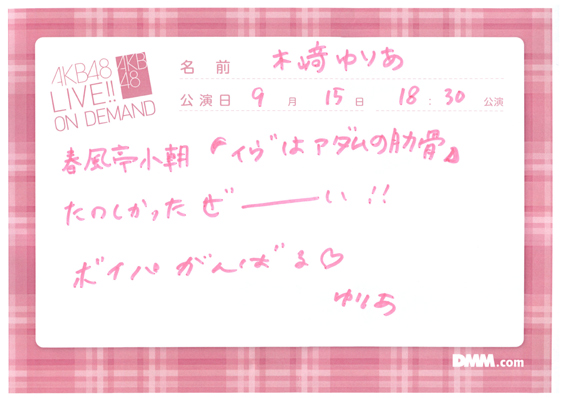 AKB48
LIVE!!
ON DEMAND
AKB
48
名前 木﨑ゆりあ
公演日 9月 15日 18:30 公演
春風亭小朝 『イヴはアダムの肋骨』
たのしかったぜ———い!!
ボイパがんばる♡
ゆりあ
DMM.com